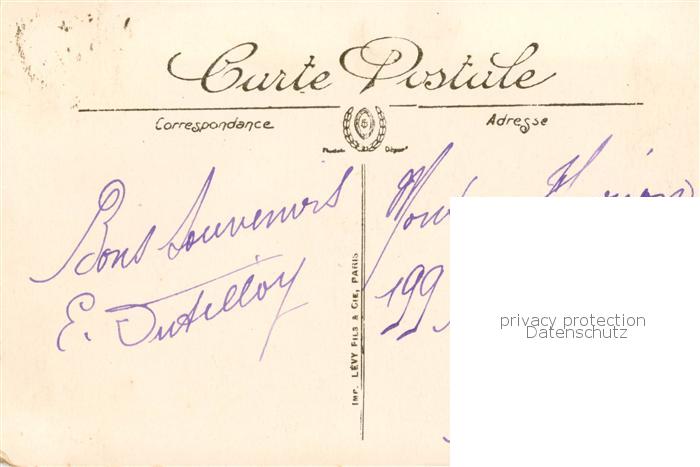 Carte Postale
Correspondance
Adresse
Bons Souvenirs
E. Dutilloy
199
IMP. LÉVY FILS & CIE, PARIS
privacy protection
Datenschutz